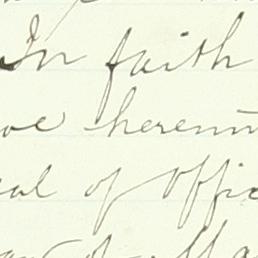 In faith
ve hereun
eal of offic